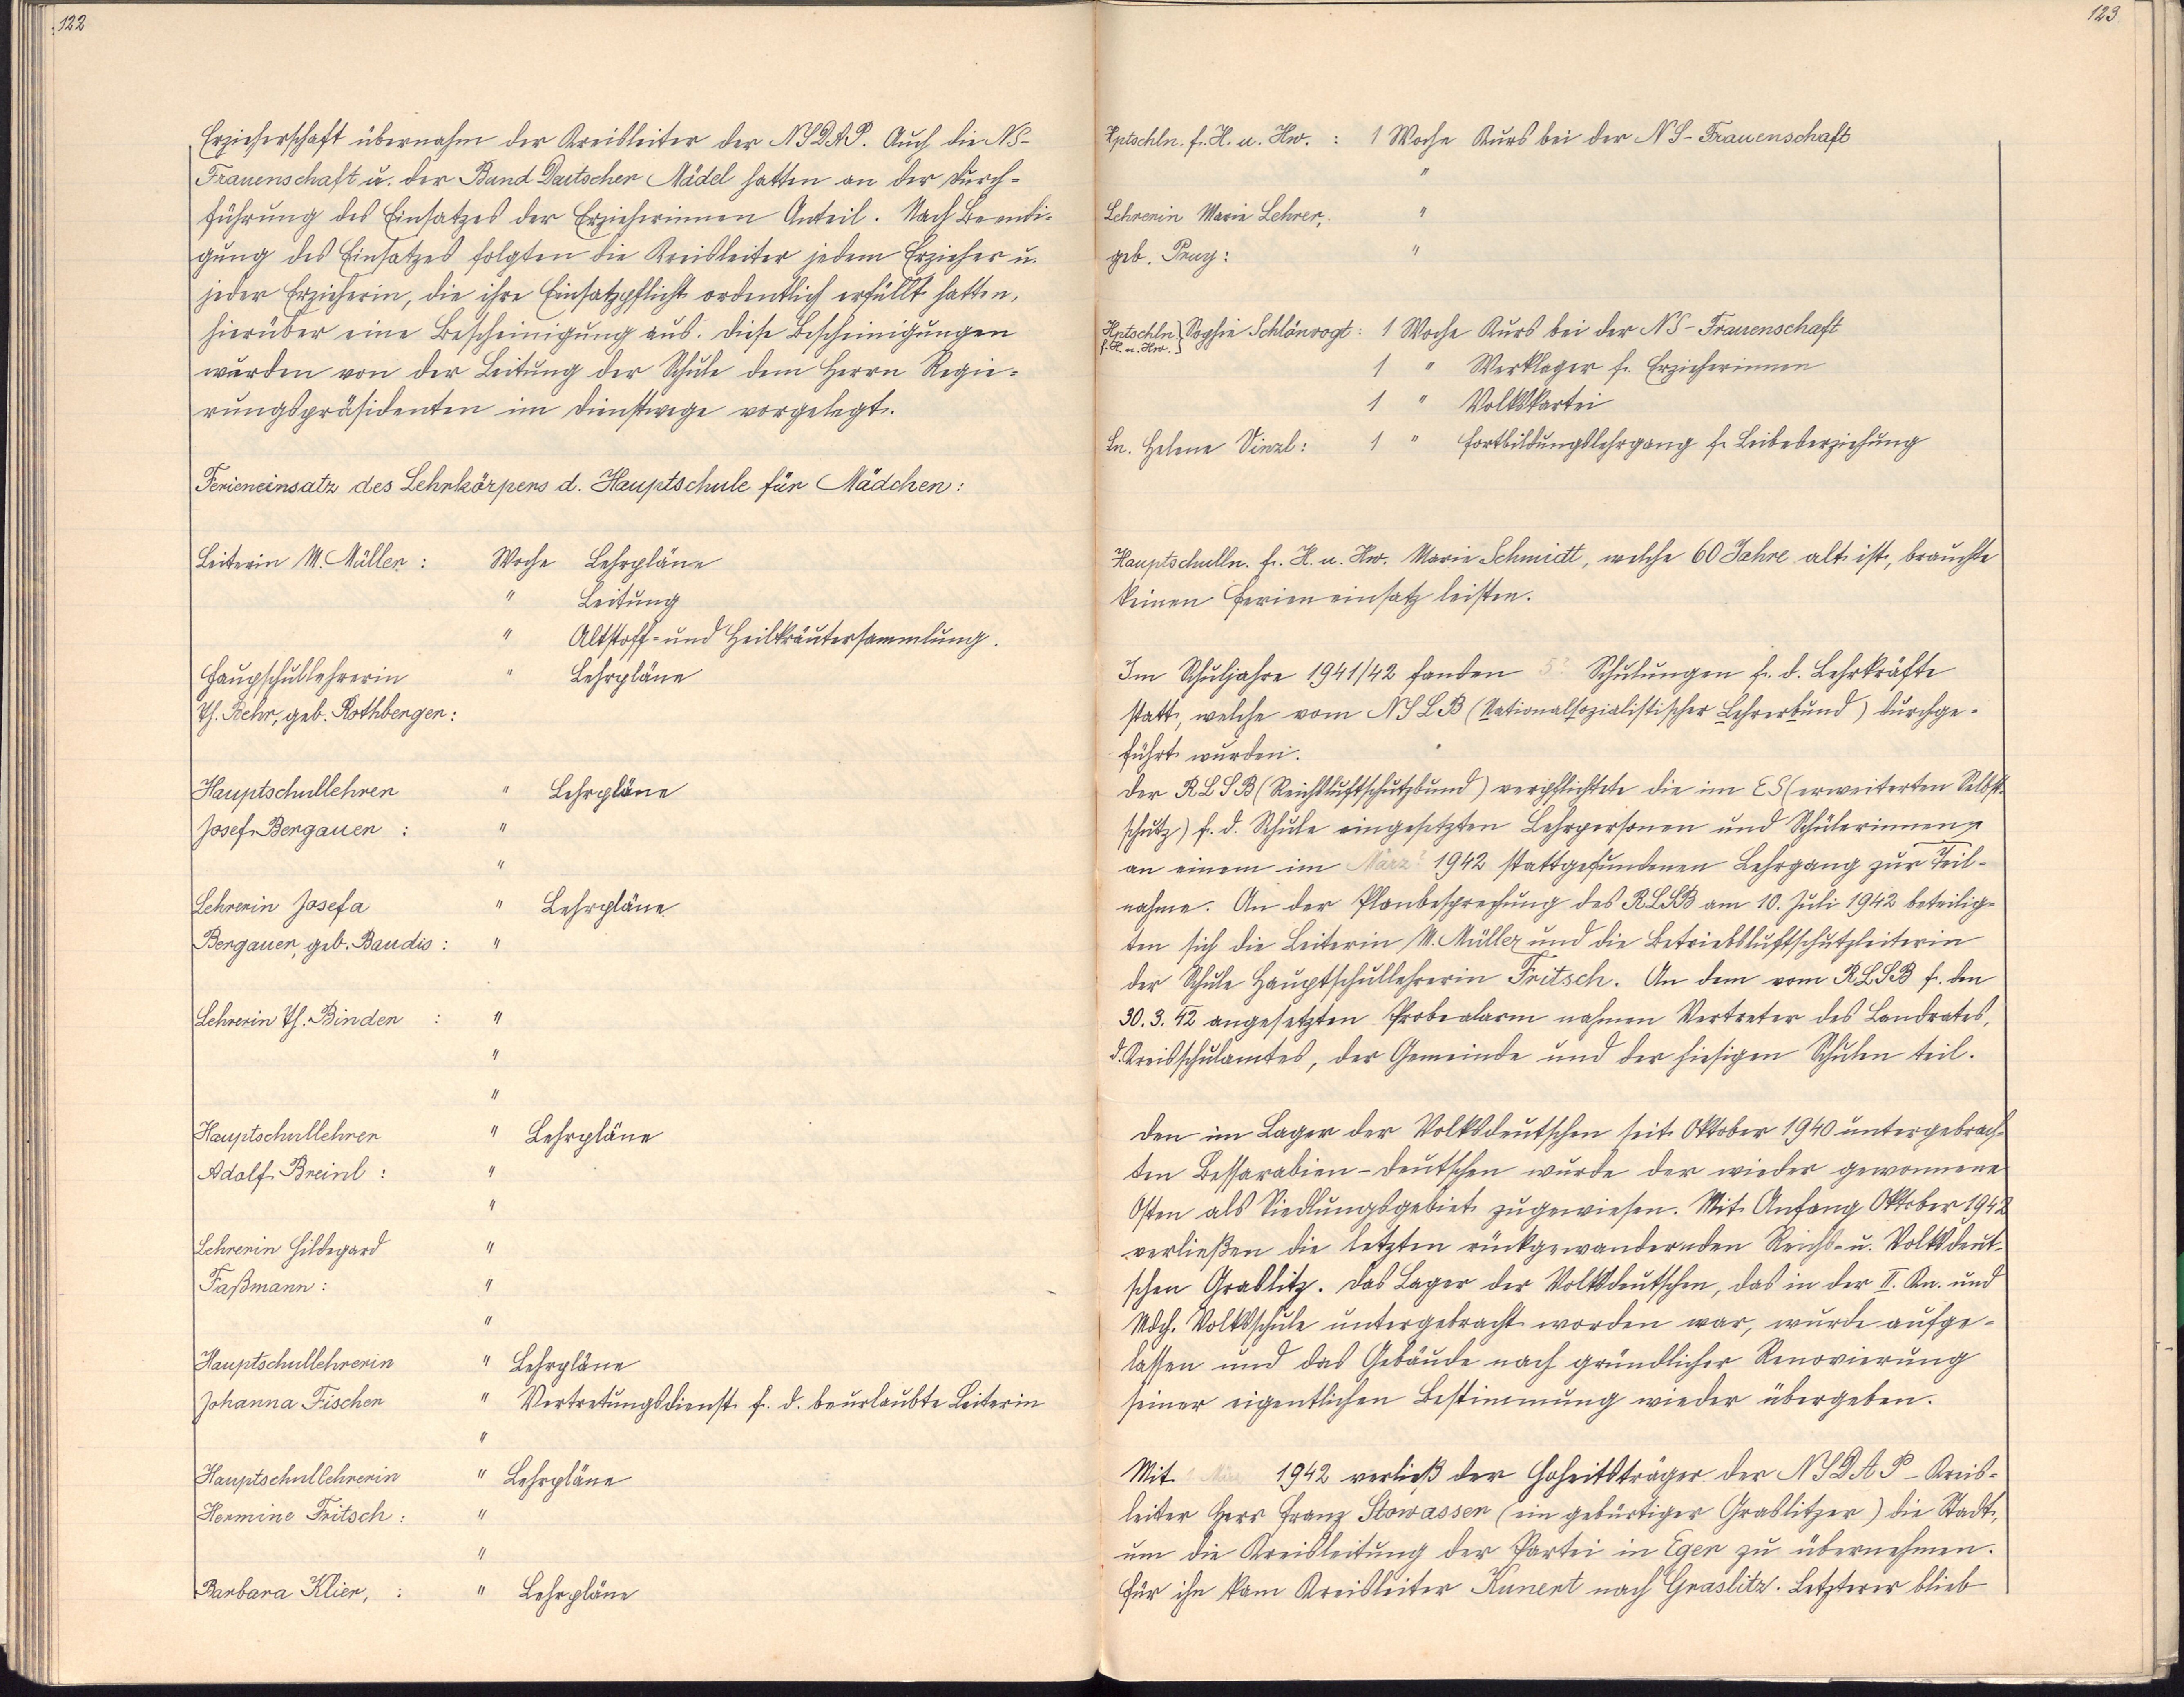 122
Erzieherschaft übernahm der Kreisleiter der NSDAP. Auch die NS-
Frauenschaft u. der Bund Deutscher Mädel hatten an der Durch-
führung des Einsatzes der Erzieherinnen Anteil. Nach Beendi-
gung des Einsatzes folgten die Kreisleiter jedem Erzieher u.
jeder Erzieherin, die ihre Einsatzpflicht ordentlich erfüllt hatten,
hierüber eine Bescheinigung aus. Diese Bescheinigungen
wurden von der Leitung der Schule dem Herrn Regie-
rungspräsidenten im Dienstwege vorgelegt.
Ferieneinsatz des Lehrkörpers d. Hauptschule für Mädchen:
Leiterin M. Müller: Woche Lehrpläne
" Leitung
" Altstoff- und Heilkräutersammlung.
Haupschullehrerin " Lehrpläne
Th. Behr, geb. Rothberger:
Hauptschullehrer " Lehrpläne
Josef Bergauer: "
"
Lehrerin Josefa " Lehrpläne
Bergauer, geb. Baudis: "
Lehrerin Th. Binder: "
"
"
Hauptschullehrer " Lehrpläne
Adolf Breinl: "
"
Lehrerin Hildegard "
Faßmann: "
"
Hauptschullehrerin " Lehrpläne
Johanna Fischer " Vertretungsdienst f. d. beurlaubte Leiterin
"
Hauptschullehrerin " Lehrpläne
Hermine Fritsch: "
"
Barbara Klier,: " Lehrpläne
123.
Hptschln. f. H. u. Hw.: 1 Woche Kurs bei der NS-Frauenschaft
"
Lehrerin Marie Lehrer, "
geb. "
Hptschln. f. H. u. Hw. } Sophie Schlönvogt: 1 Woche Kurs bei der NS-Frauenschaft
1 " Werklager f. Erzieherinnen
1 " Volkskartei
Ln. Helene Sinzl: 1 " Fortbildungslehrgang f. Leibeserziehung
Hauptschulln. f. H. u. Hw. Marie Schmidt, welche 60 Jahre alt ist, brauchte
keinen Ferieneinsatz leisten.
Im Schuljahre 1941/42 fanden 5? Schulungen f. d. Lehrkräfte
statt, welche vom NSLB (Nationalsozialistischer Lehrerbund) durchge-
führt wurden.
Der RLSB (Reichsluftschutzbund) verpflichtete die im ES (erweiterten Selbst-
schutz) f. d. Schule eingesetzten Lehrpersonen und Schülerinnen
an einem im März? 1942 stattgefundenen Lehrgang zur Teil-
nahme. An der Planbesprechung des RLSB am 10. Juli 1942 beteilig-
ten sich die Leiterin M. Müller und die Betriebsluftschutzleiterin
der Schule Hauptschullehrerin Fritsch. An dem vom RLSB f. den
30. 3. 42 angesetzten Probealarm nahmen Vertreter des Landrates,
d. Kreisschulamtes, der Gemeinde und der hiesigen Schulen teil.
Den im Lager der Volksdeutschen seit Oktober 1940 untergebrach-
ten Bessarabien-Deutschen wurde der wieder gewonnene
Osten als Siedlungsgebiet zugewiesen. Mit Anfang Oktober 1942
verließen die letzten rückgewandernden Reichs- u. Volksdeut-
schen Graslitz. Das Lager der Volksdeutschen, das in der II. Kn. und
Mdch. Volksschule untergebracht worden war, wurde aufge-
lassen und das Gebäude nach gründlicher Renovierung
seiner eigentlichen Bestimmung wieder übergeben.
Mit 1942 verließ der Hoheitsträger der NSDAP-Kreis-
leiter Herr Franz Stowasser (ein gebürtiger Graslitzer) die Stadt,
um die Kreisleitung der Partei in Eger zu übernehmen.
Für ihn kam Kreisleiter Kunert nach Graslitz. Letzterer blieb